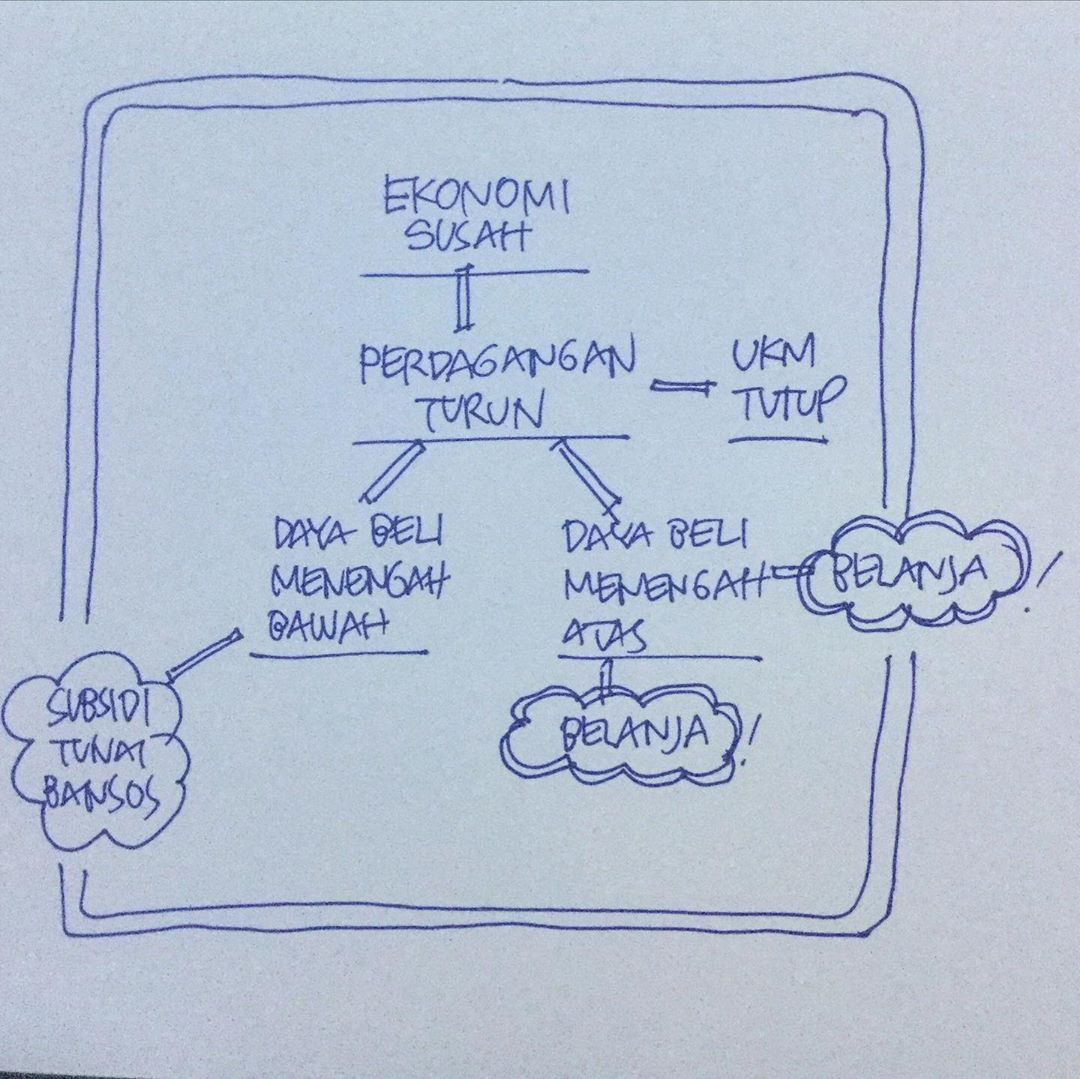 EKONOMI
SUSAH
PERDAGANGAN
TURUN
UKM
TUTUP
DAYA BELI
MENENGAH
BAWAH
DAYA BELI
MENENGAH
ATAS
BELANJA!
SUBSIDI
TUNAI
BANSOS
BELANJA!